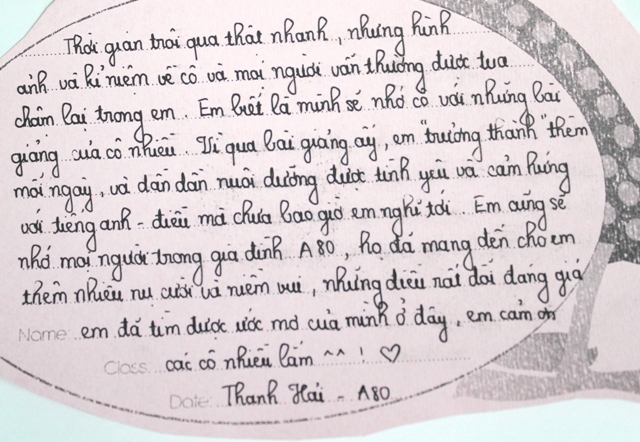 Thời gian trôi qua thật nhanh, nhưng hình
ảnh và kỉ niệm về cô và mọi người vẫn thường được tua
chậm lại trong em. Em biết là mình sẽ nhớ cô với những bài
giảng của cô nhiều. Vì qua bài giảng ấy, em "trưởng thành" thêm
mỗi ngày, và dần dần nuôi dưỡng được tình yêu và cảm hứng
với tiếng anh - điều mà chưa bao giờ em nghĩ tới. Em cũng sẽ
nhớ mọi người trong gia đình A80, họ đã mang đến cho em
thêm nhiều nụ cười và niềm vui, những điều rất đỗi đáng giá
Name: em đã tìm được ước mơ của mình ở đây, em cảm ơn
Class: các cô nhiều lắm ^^ ! ♡
Date: Thanh Hải - A80